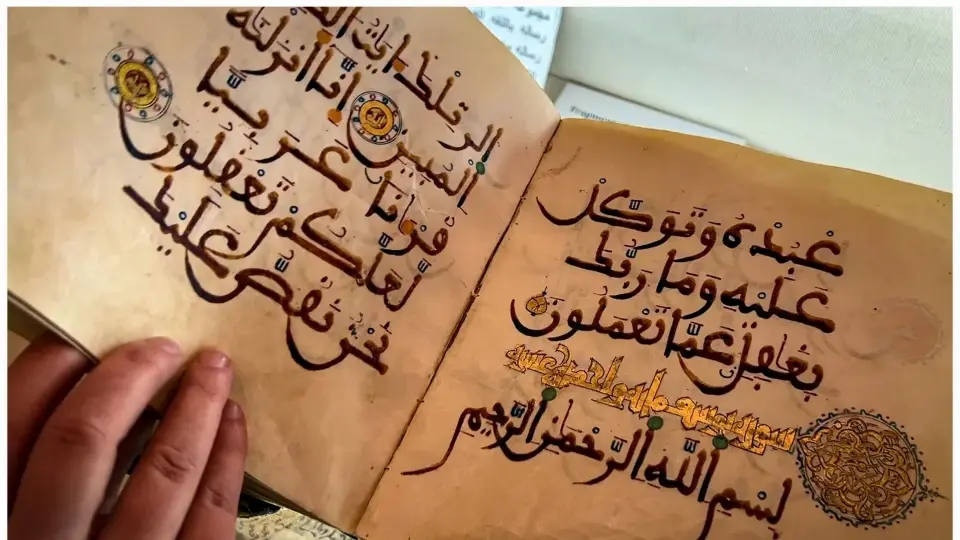 عْبُدْهُ وَتَوَكَّلْ
عَلَيْهِ وَمَا رَبُّكَ
بِغَٰفِلٍ عَمَّا تَعْمَلُونَ
سورة يوسف
بِسْمِ اللَّهِ الرَّحْمَٰنِ الرَّحِيمِ
الر تِلْكَ ءَايَٰتُ
الْمُبِينِ إِنَّا أَنزَلْنَٰهُ
قُرْءَٰنًا عَرَبِيًّا
لَعَلَّكُمْ تَعْقِلُونَ
نَحْنُ نَقُصُّ عَلَيْكَ